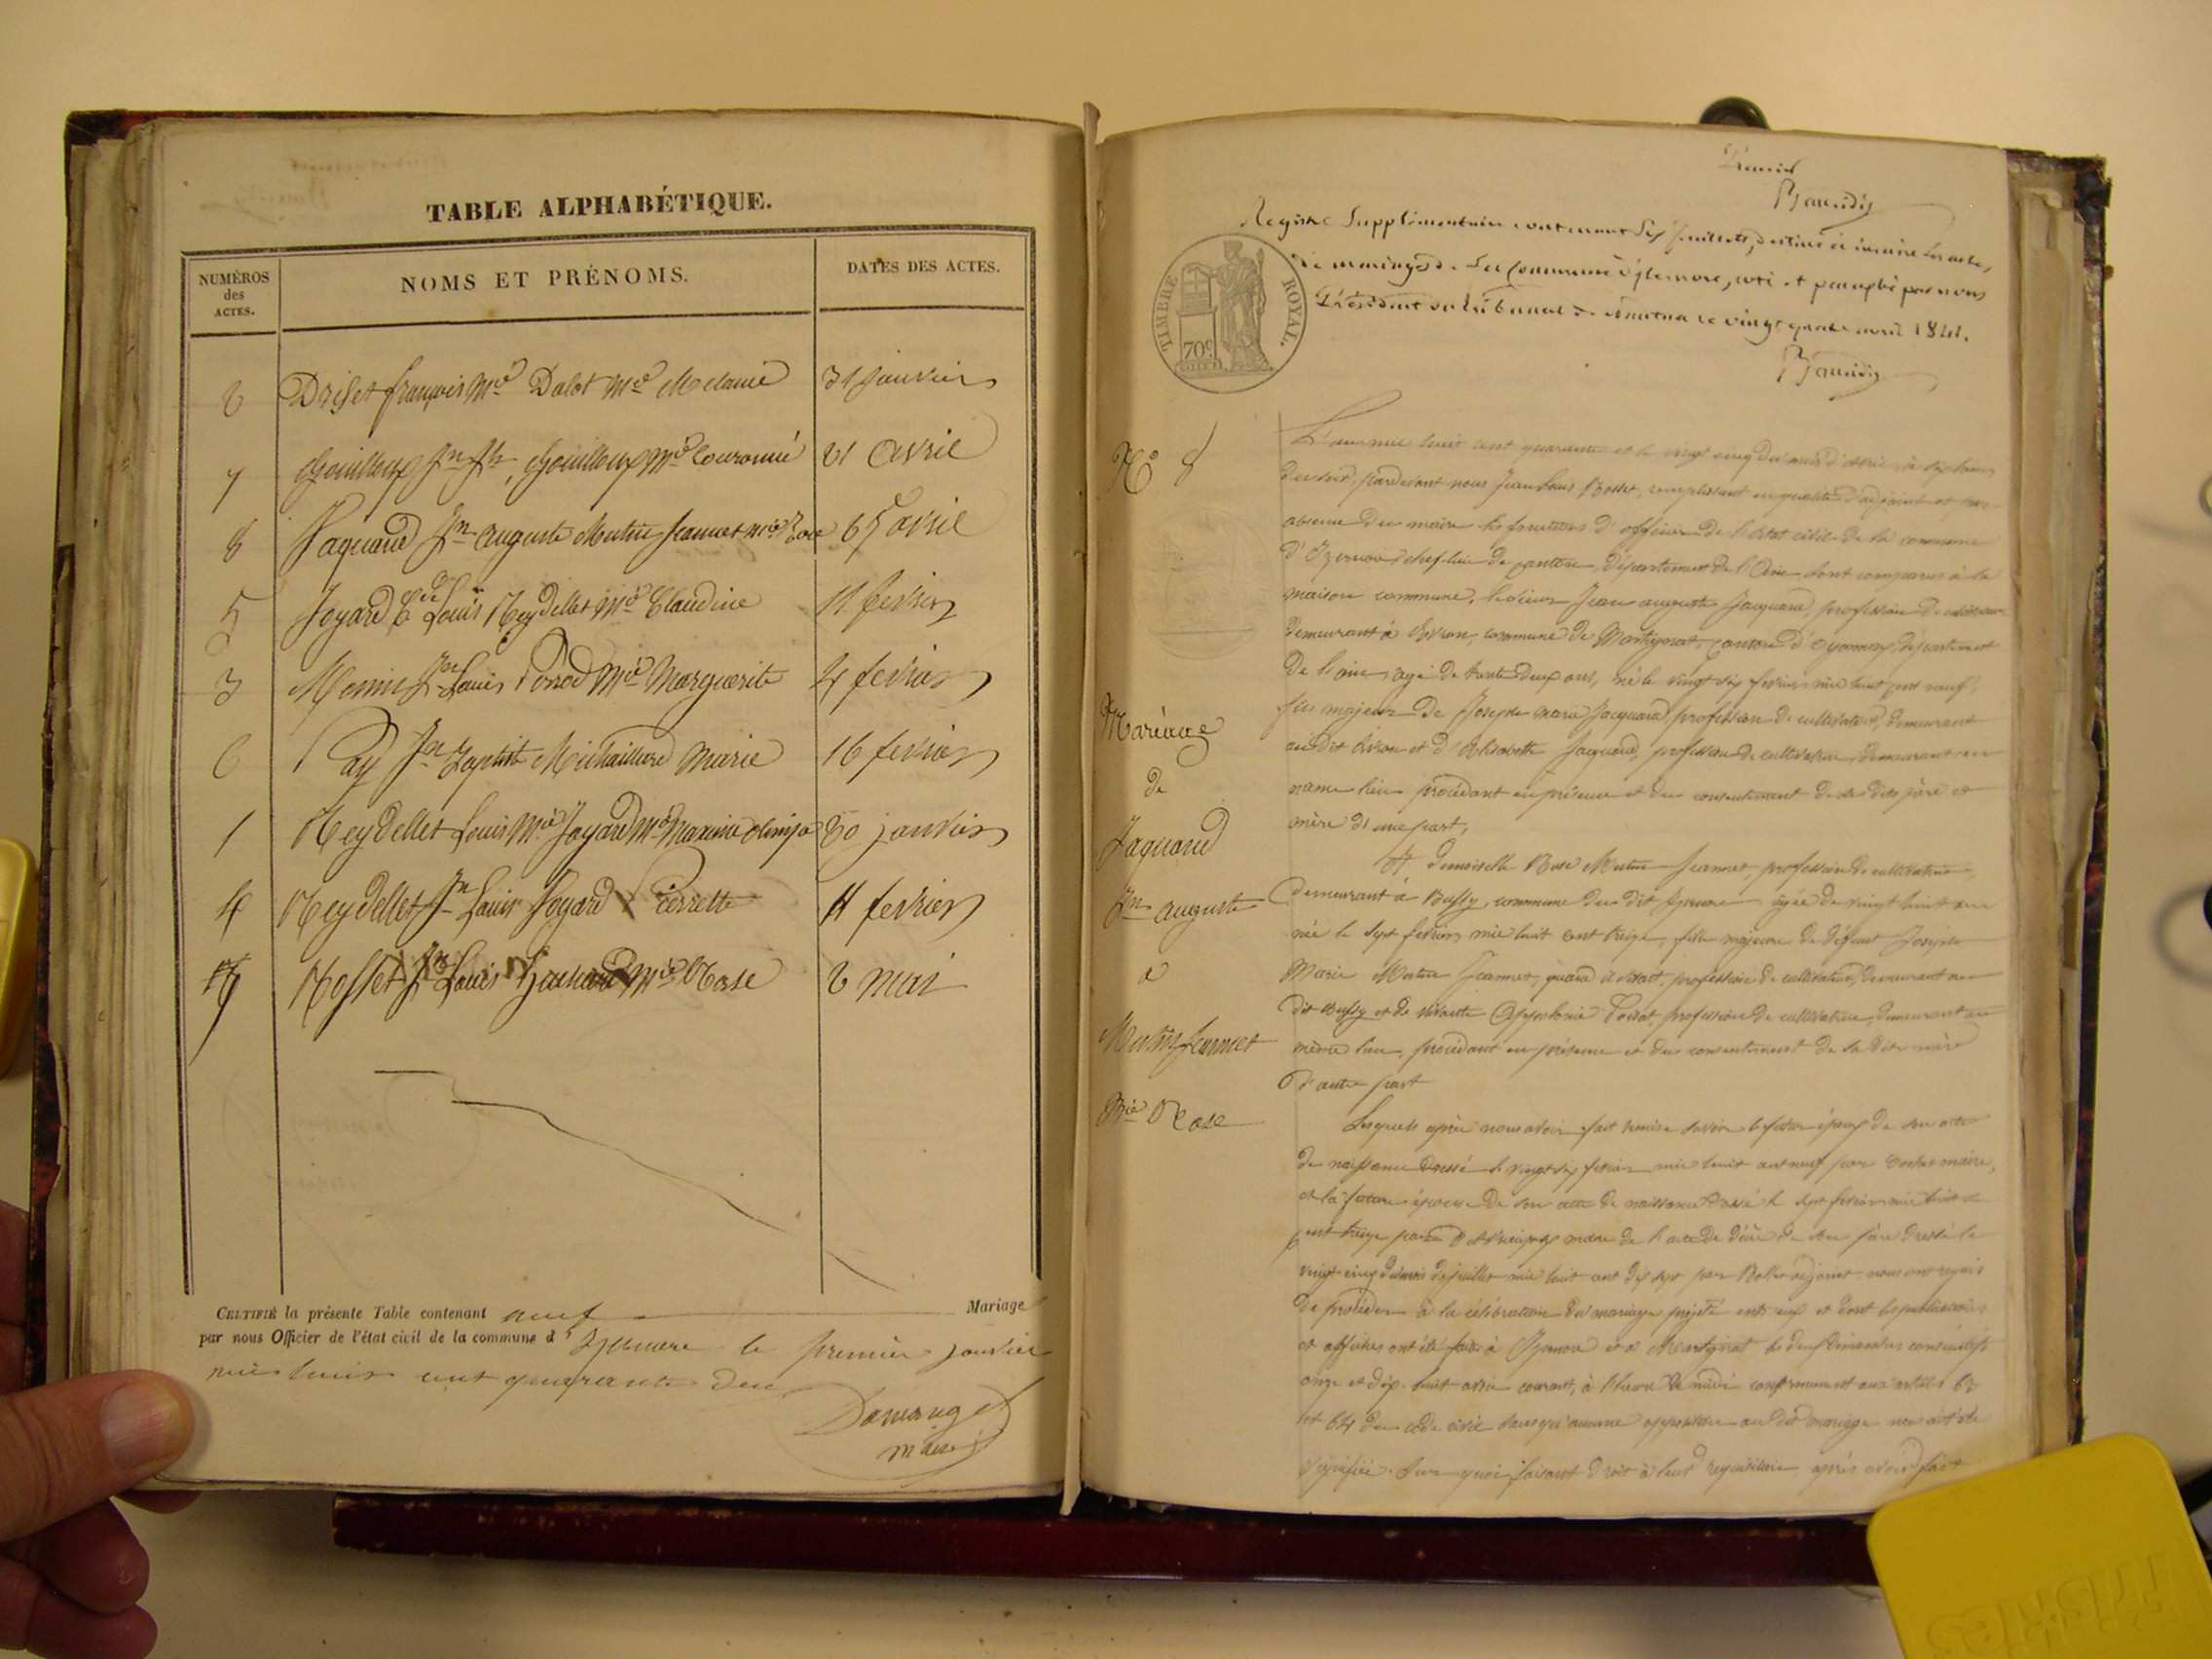 TABLE ALPHABÉTIQUE.
NUMÉROS des ACTES.
NOMS ET PRÉNOMS.
DATES DES ACTES.
2 Driset françois Mie Dalot Mie Melanie 31 Janvier
7 Gouilloux Jn Jh, Gouilloux Mie Couronné 21 avril
8 Jaquand Jn auguste Mutin Jeannet Mie Rose 25 avril
5 Joyard Cde Louis Reydellet Mie Claudine 11 fevrier
3 Jn Louis Mie Marguerite 4 fevrier
6 Jn Baptiste Michaillard Marie 16 fevrier
1 Reydellet Louis Mie Joyard Mie 20 janvier
4 Reydellet Jn Louis Joyard Pierrette 11 fevrier
9 Rosset Jn Louis Mie Rose 2 mai
CERTIFIÉ la présente Table contenant neuf Mariage
par nous Officier de l'état civil de la commune d' Izernore le premier janvier
mil huit cent quarante deux
maire
Registre Supplémentaire contenant Six feuillets, destiné à inscrire les actes
de mariages de la Commune d'Izernore, coté et paraphé par nous
Président du tribunal de Nantua le vingt quatre avril 1841.
TIMBRE ROYAL.
70c
No 8
Mariage
de
Jaquand
Jn auguste
et
Mutin Jeannet
Mie Rose
L'an mil huit cent quarante et le vingt cinq du mois d'avril à six heures
du soir, pardevant nous Jean Louis Rosset, remplissant en qualité d'adjoint et par
absence du maire les fonctions d'officier de l'état civil de la commune
d'Izernore chef-lieu de canton, département de l'Ain, sont comparus à la
maison commune, le sieur Jean auguste Jacquand, profession de
demeurant à commune de Martignat, canton d'Oyonnax, département
de l'ain, agé de trente deux ans, né le vingt six fevrier mil huit cent neuf,
fils majeur de Joseph marie Jacquand, profession de cultivateur, demeurant
au dit et d'Elisabeth Jacquand, profession de cultivatrice, demeurant au
même lieu procédant en présence et du consentement de ses dits père et
mère d'une part,
Et demoiselle Rose Mutin Jeannet, profession de cultivatrice,
demeurant à Bussy, commune du dit Izernore agée de vingt huit ans
née le sept fevrier mil huit cent treize, fille majeure de défunt Joseph
Marie Mutin Jeannet, quand il vivait, profession de cultivateur, demeurant au
dit Bussy et de vivante Appolonie profession de cultivatrice, demeurant au
même lieu, procédant en présence et du consentement de sa dite mère
d'autre part
Lesquels après nous avoir fait remise savoir le futur époux de son acte
de naissance dressé le vingt six fevrier mil huit cent neuf par maire,
et la future épouse de son acte de naissance dressé le sept fevrier mil huit
cent treize par maire de l'acte de décès de son père dressé le
vingt-cinq du mois de juillet mil huit cent dix sept par adjoint nous ont requis
de procéder à la célébration du mariage projeté entre eux et dont les publications
et affiches ont été faites à Izernore et à Martignat les deux dimanches consécutifs
onze et dix-huit avril courant, à l'heure de midi conformément aux articles 63
et 64 du code civil sans qu'aucune opposition au dit mariage nous ait été
signifiée. Sur quoi faisant droit à leur réquisition, après avoir fait